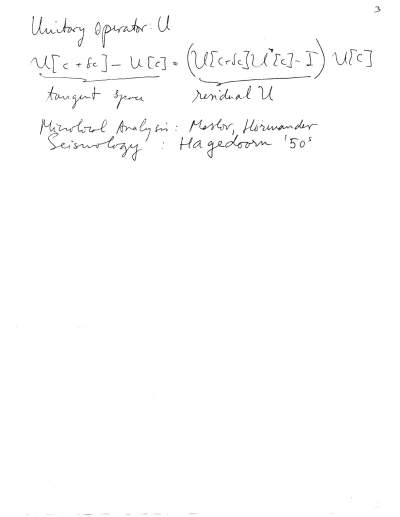 3
Unitary Operator U
U[c + δc] − U[c] = (U[c+δc]U*[c] − I) U[c]
tangent space residual U
Microlocal Analysis: Maslov, Hörmander
Seismology : Hagedoorn '50s